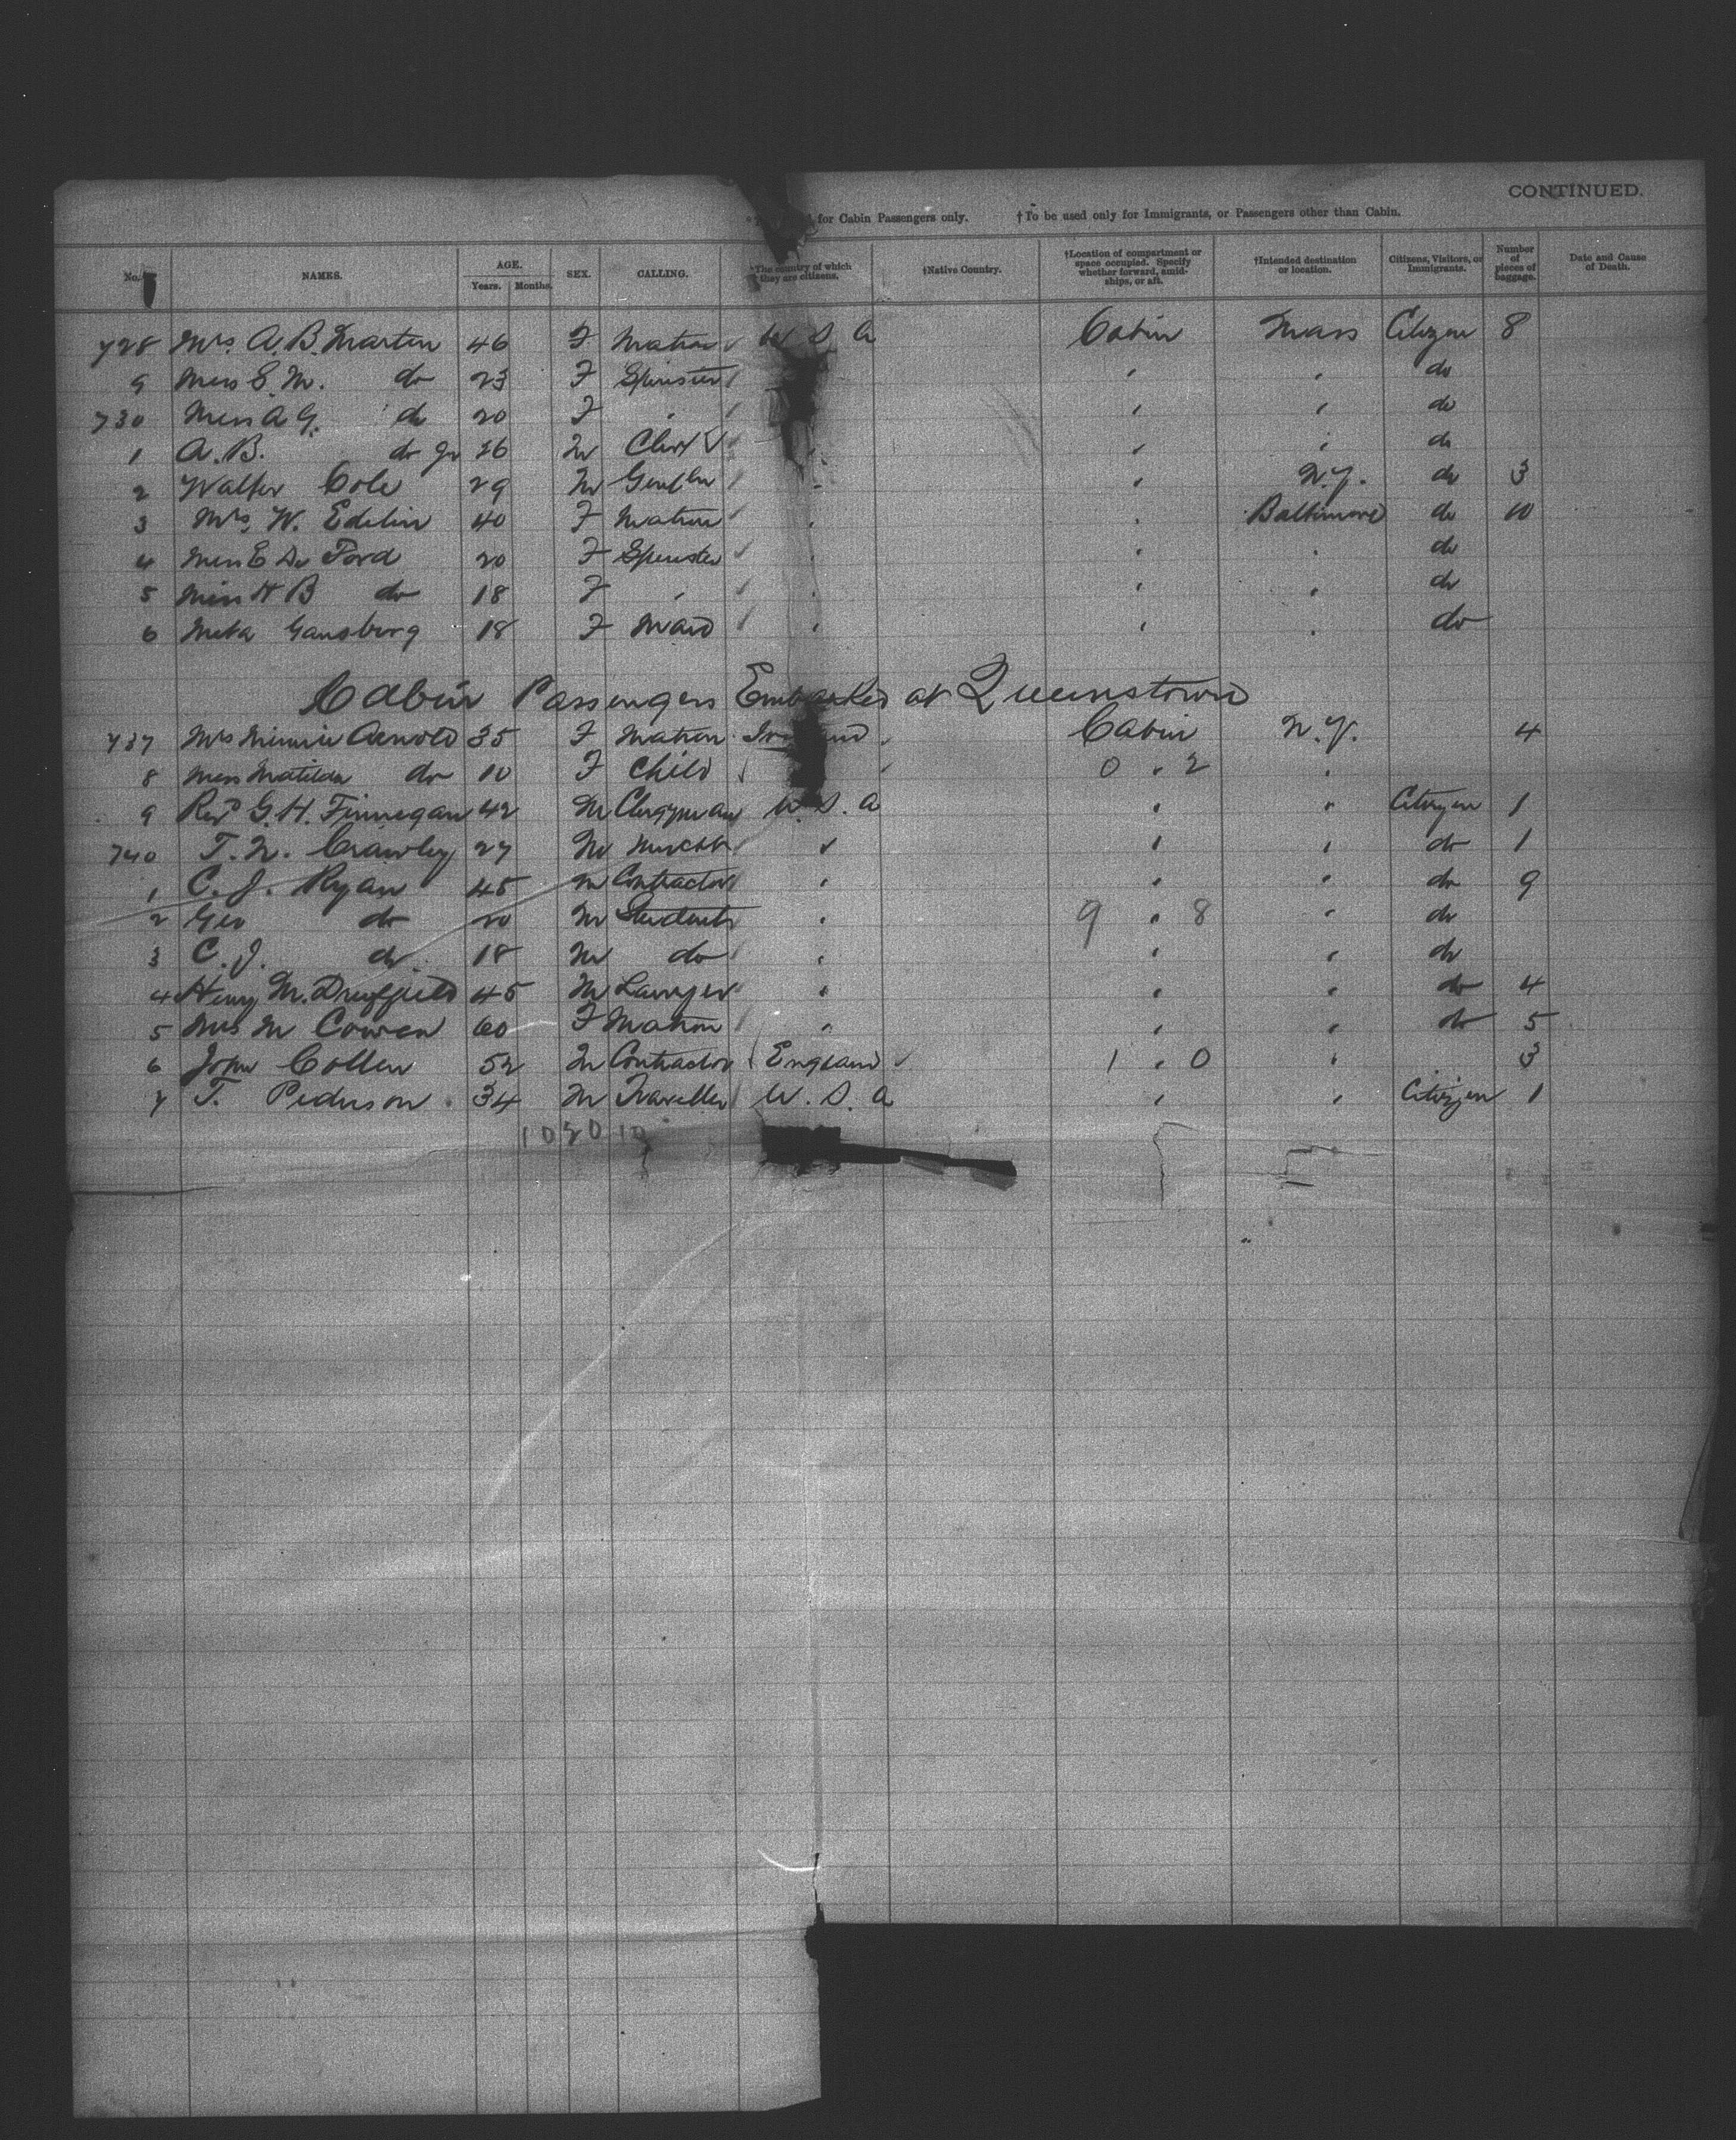 CONTINUED.
for Cabin Passengers only. †To be used only for Immigrants, or Passengers other than Cabin.
No. NAMES. AGE. Years. Months. SEX. CALLING. *The country of which they are citizens. †Native Country. †Location of compartment or space occupied. Specify whether forward, amidships, or aft. †Intended destination or location. Citizens, Visitors, or Immigrants. Number of pieces of baggage. Date and Cause of Death.
728 Mrs. A. B. Martin 46 F Matron U S A Cabin Mass Citizen 8
9 Miss E. M. do 23 F Spinster " " do
730 Miss A G. do 20 F " " " do
1 A. B. do Jr 16 M Clerk " " " do
2 Walter Cole 29 M Gentln " " N.Y. do 3
3 Mrs. W. Edelin 40 F Matron " " Baltimore do 10
4 Miss E De Ford 20 F Spinster " " " do
5 Miss H B do 18 F " " " " do
6 Meta Gansberg 18 F Maid " " " do
Cabin Passengers Embarked at Queenstown
737 Mrs Minnie Arnold 35 F Matron Cabin N.Y. 4
8 Miss Matilda do 10 F Child 0 " 2 "
9 Revd G. H. Finnegan 42 M Clergyman U. S. A " " Citizen 1
740 T. N. Crawley 27 M " " " do 1
1 C. J. Ryan 45 M Contractor " " " do 9
2 Geo do 20 M Student " 9 " 8 " do
3 C. J. do 18 M do " " " do
4 Henry M. 45 M Lawyer " " " do 4
5 Mrs M Cowen 60 F Matron " " " do 5
6 John Collen 52 M Contractor England 1 " 0 " 3
7 T. Pederson 34 M Traveller U. S. A " " Citizen 1
102010